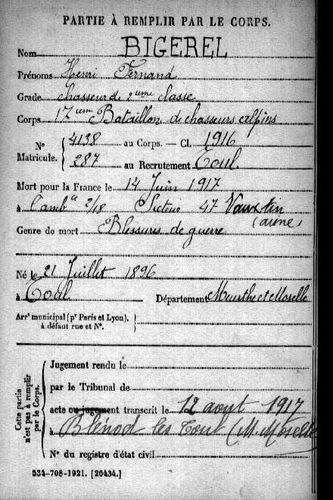 PARTIE À REMPLIR PAR LE CORPS.
Nom BIGEREL
Prénoms Henri Fernand
Grade chasseur de 2ème classe
Corps 17ème Bataillon de chasseurs alpins
N° Matricule. { 4138 au Corps. — Cl. 1916
287 au Recrutement Toul
Mort pour la France le 14 Juin 1917
à l'ambce 2/18 Secteur 47 Vauxtin
(aisne)
Genre de mort Blessures de guerre
Né le 21 Juillet 1896
à Toul Département Meurthe et Moselle
Arrt municipal (pr Paris et Lyon), à défaut rue et N°.
Cette partie n'est pas à remplir par le Corps.
Jugement rendu le
par le Tribunal de
acte ou jugement transcrit le 12 août 1917
à Blénod les Toul (M. Moselle)
N° du registre d'état civil
534-708-1921. [26434.]